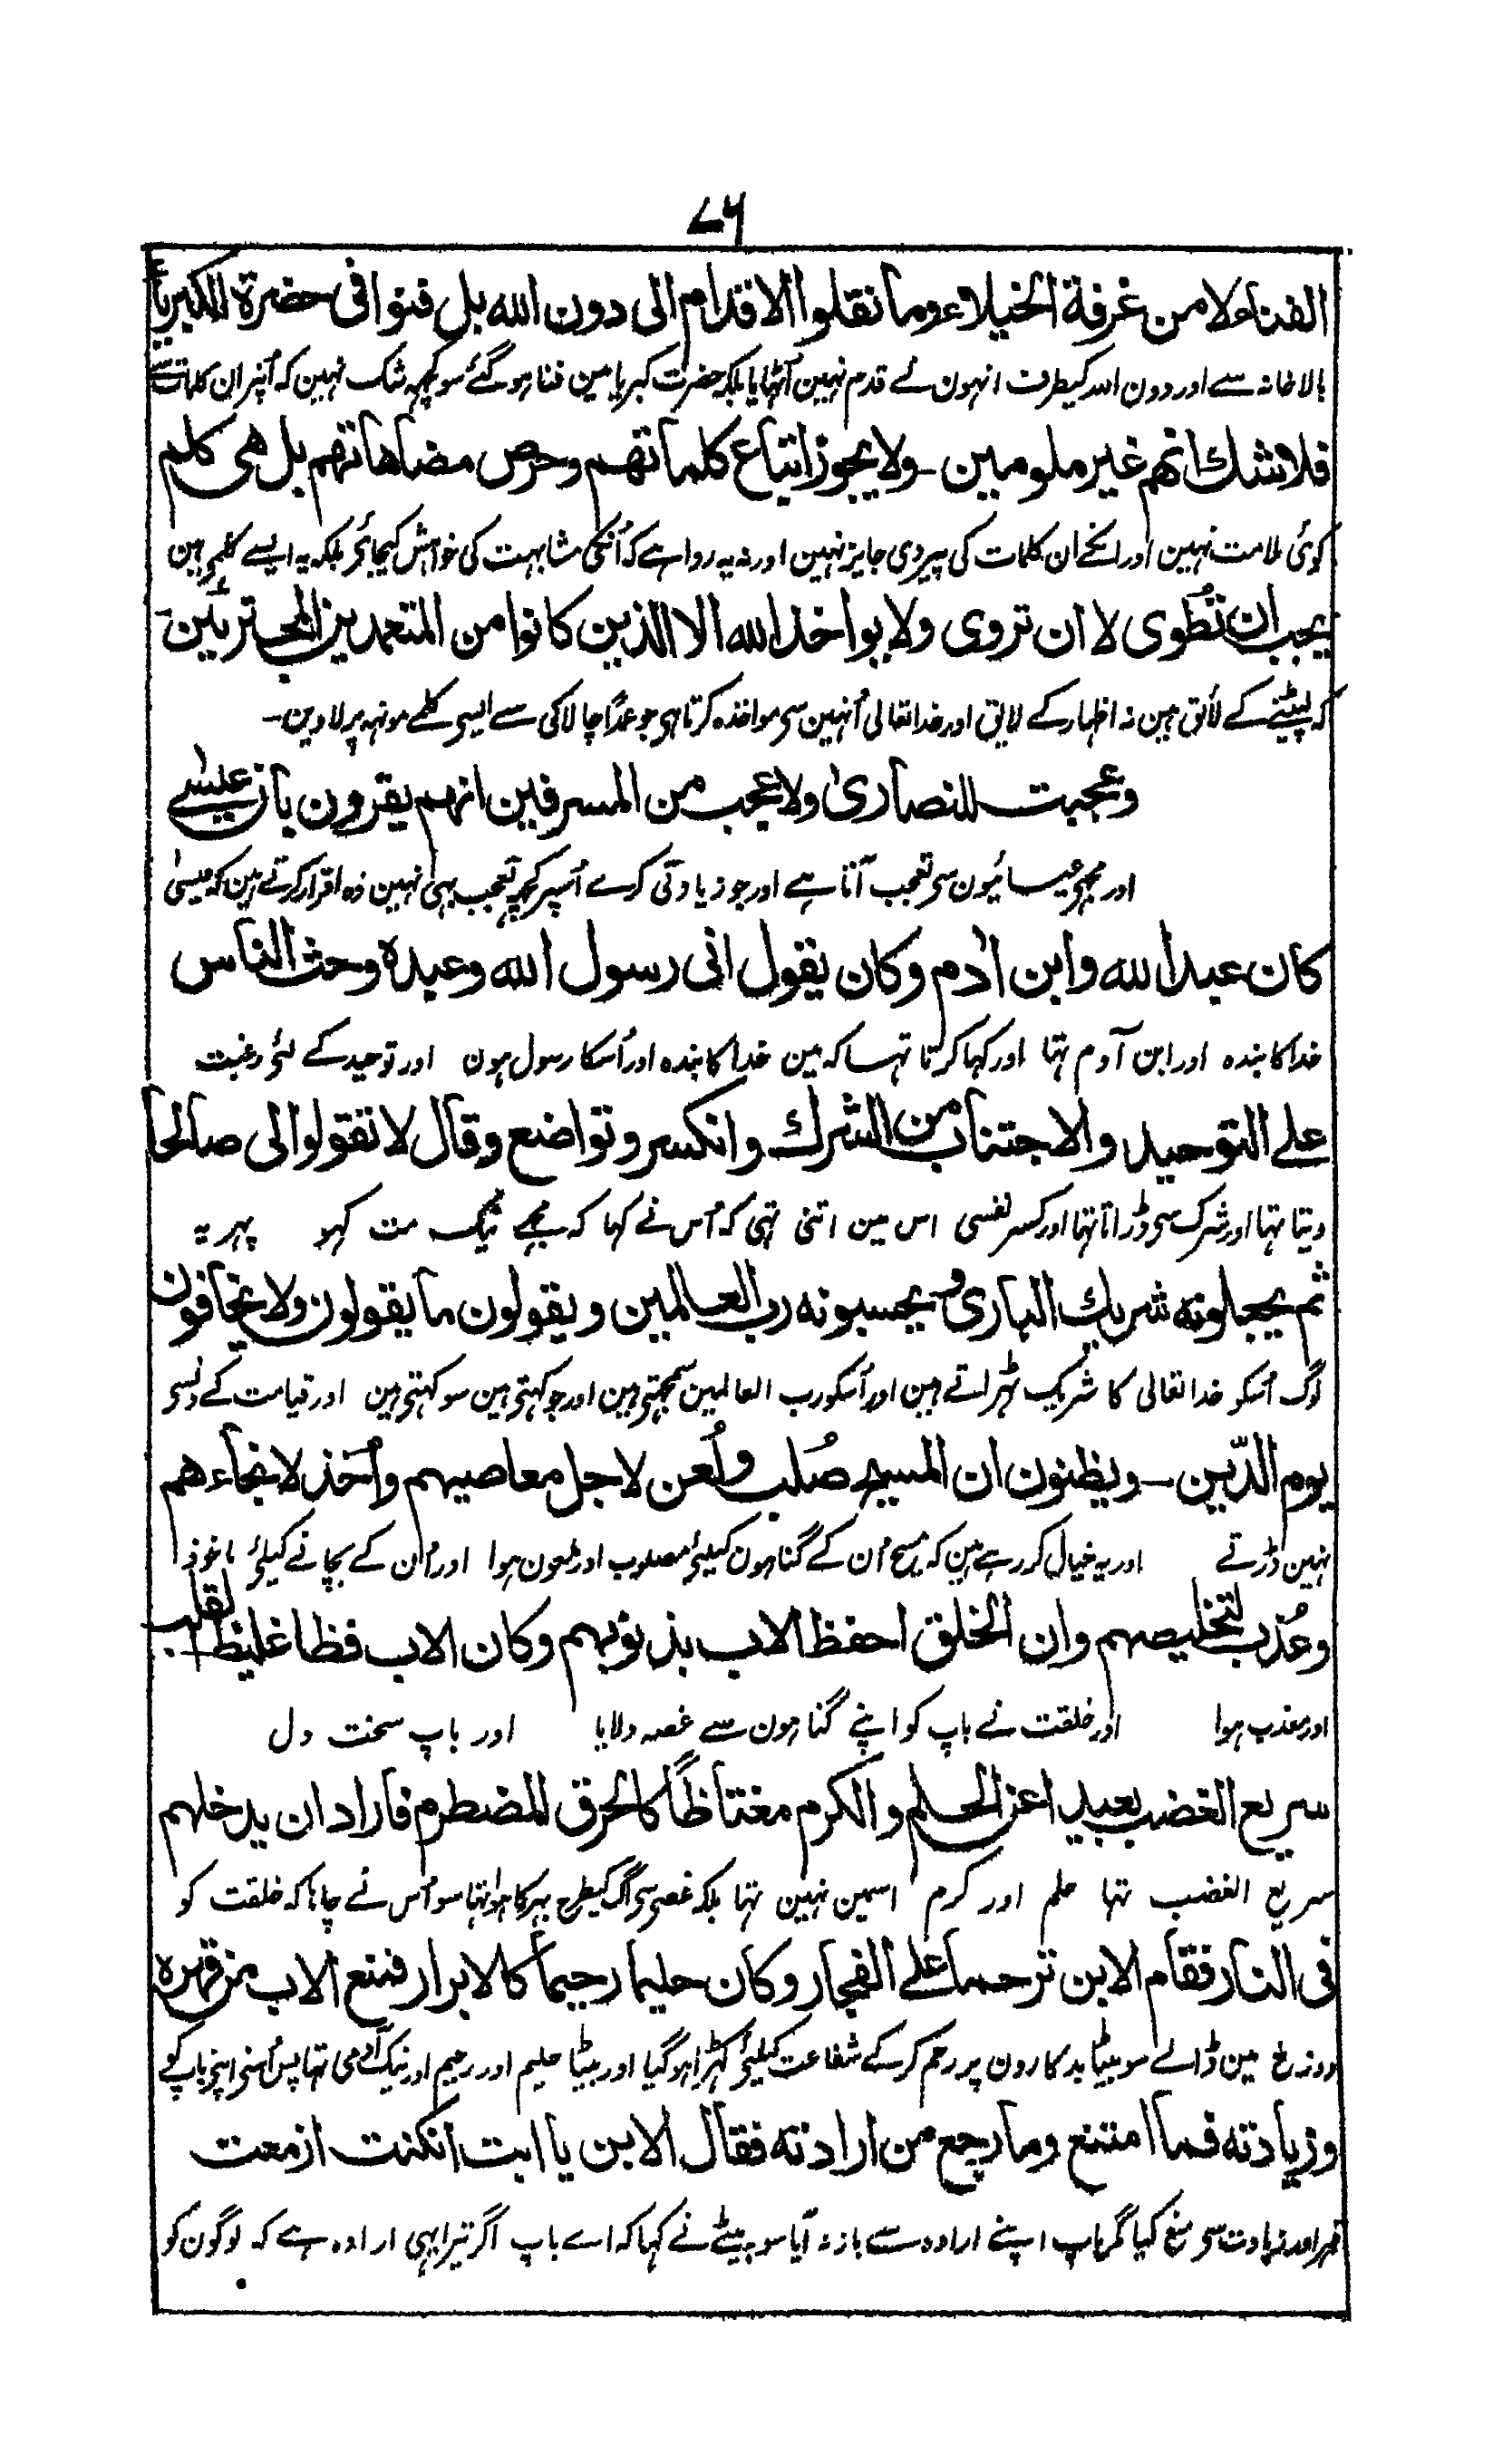 ۷۶
الفناء لا من غرفة الخيلاء وما نقلوا الاقدام الى دون الله بل فنوا فى حضرة الكبرياء
بالاخانہ سے اور دون اللہ کیطرف انہون نے قدم نہین اُٹھایا بلکہ حضرت کبریا مین فنا ہوگئے سو کچہہ شک نہین کہ اُنپر ان کلمات سے
فلا شك انهم غير ملومين ۔ ولا يجوز اتباع كلماتهم وحرص مضاهاتهم بل هى كلم
کوئی ملامت نہین اور انکے ان کلمات کی پیروی جایز نہین اور نہ یہ روا ہے کہ اُنکی مشابہت کی خواہش کیجائے بلکہ یہ ایسے کلمے ہین
يجب ان تُطْوى لا ان تروى ولا يواخذ الله الا الذين كانوا من المتعمدين المجترئين ۔
کہ لپیٹنے کے لائق ہین نہ اظہار کے لایق اور خدا تعالی اُنہین سے مواخذہ کرتا ہے جو عمدًا چالاکی سے ایسے کلمے مونہہ پر لاوین ۔
وعجبت للنصارىٰ ولا عجب من المسرفين انهم يقرون بان عيسٰے
اور مجہے عیسائیون سے تعجب آتا ہے اور جو زیادتی کرے اُسپر کچہہ تعجب بہی نہین وہ اقرار کرتے ہین کہ عیسیٰ
كان عبد الله وابن اٰدم وكان يقول انى رسول الله وعبده وحث الناس
خدا کا بندہ اور ابن آدم تہا اور کہا کرتا تہا کہ مین خدا کا بندہ اور اُسکا رسول ہون اور توحید کے لئے رغبت
علے التوحيد والاجتناب من الشرك وانكسر وتواضع وقال لا تقولوا لى صالحا
دیتا تہا اور شرک سے ڈراتا تہا اور کسر نفسی اس مین اتنی تہی کہ اُس نے کہا کہ مجہے نیک مت کہو پہر یہ
ثم يجعلونه شريك البارى و يحسبونه رب العالمين ويقولون ما يقولون ولا يخافون
لوگ اُسکو خدا تعالی کا شریک ٹہراتے ہین اور اُسکو رب العالمین سمجہتے ہین اور جو کہتے ہین سو کہتے ہین اور قیامت کے دنسے
يوم الدّين ۔ ويظنون ان المسيح صُلب ولُعن لاجل معاصيهم وأُخذ لانجاءهم
نہین ڈرتے اور یہ خیال کر رہے ہین کہ مسیح اُن کے گناہون کیلئے مصلوب اور ملعون ہوا اور اُن کے بچانے کیلئے ماخوذ
وعُذّب لتخليصهم وان الخلق احفظ الاب بذنوبهم وكان الاب فظا غليظ القلب
اور معذب ہوا اور خلقت نے باپ کو اپنے گناہون سے غصہ دلایا اور باپ سخت دل
سريع الغضب بعيدا عن الحلم والكرم مغتاظًا كالحرق المضطرم فاراد ان يدخلهم
سریع الغضب تہا حلم اور کرم اسمین نہین تہا بلکہ غصے سے آگ کیطرح بہرکا ہوا تہا سو اُس نے چاہا کہ خلقت کو
فى النار فقام الابن ترحما علے الفجار وكان حليما رحيما كالابرار فمنع الاب من قهره
دوزخ مین ڈالے سو بیٹا بدکارون پر رحم کر کے شفاعت کیلئے کہڑا ہوگیا اور بیٹا حلیم اور رحیم اور نیک آدمی تہا پس اُسنے اپنے باپ کو
وزيادته فما امتنع وما رجع من ارادته فقال الابن يا ابت ان كنت ازمعت
قہر اور زیادت سے منع کیا مگر باپ اپنے ارادہ سے باز نہ آیا سو بیٹے نے کہا کہ اے باپ اگر تیرا یہی ارادہ ہے کہ لوگون کو